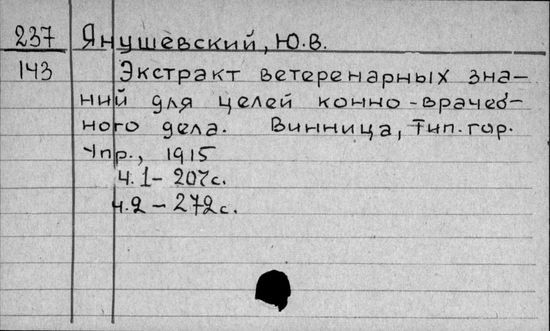 237 Янушевский, Ю.В.
143 Экстракт ветеренарных зна-
ний для целей конно-врачеб-
ного дела. Винница, Тип. гор.
Упр., 1915
ч. 1 - 207 с.
ч. 2 - 272 с.